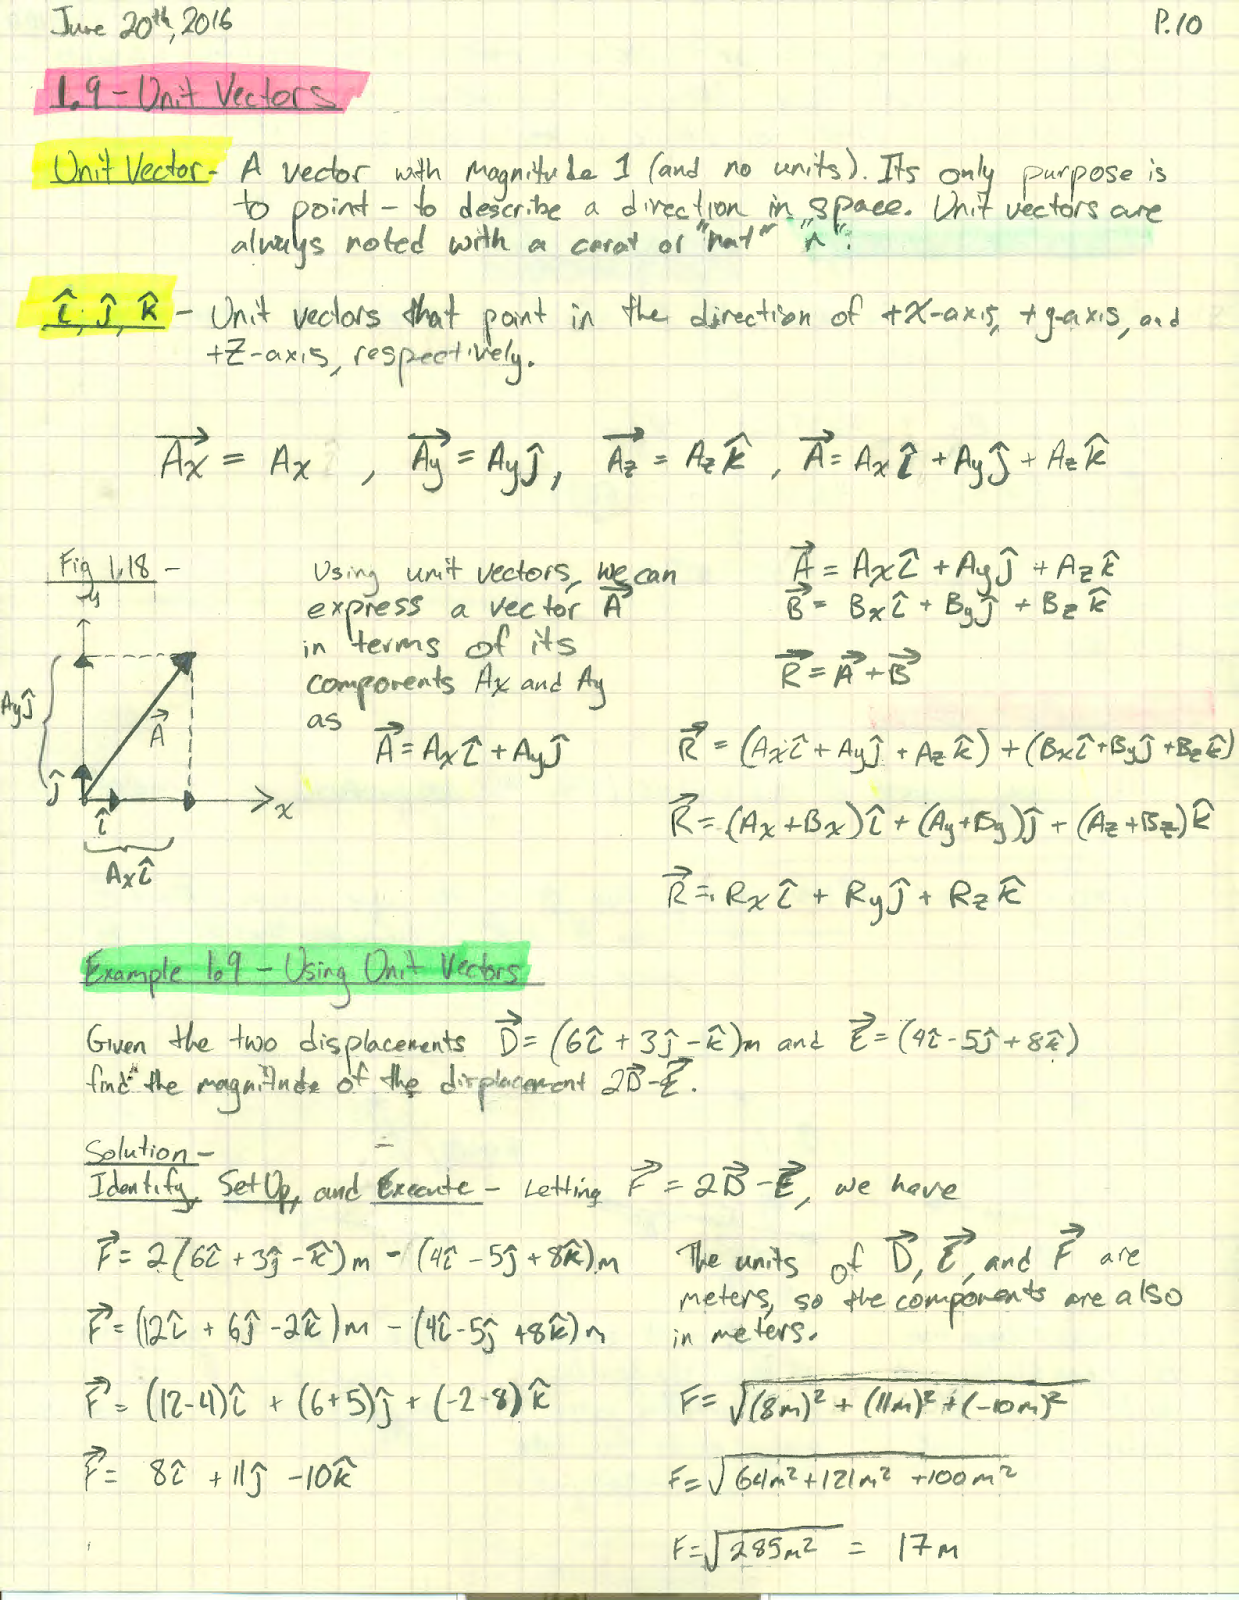 June 20th, 2016
P.10
1.9 - Unit Vectors
Unit Vector - A vector with magnitude 1 (and no units). Its only purpose is
to point - to describe a direction in space. Unit vectors are
always noted with a carat or "hat" "^".
î, ĵ, k̂ - Unit vectors that point in the direction of +x-axis, +y-axis, and
+z-axis, respectively.
A⃗x = Ax , A⃗y = Ay ĵ, A⃗z = Az k̂ , A⃗ = Ax î + Ay ĵ + Az k̂
Fig 1.18 -
y
Ay ĵ
A⃗
ĵ
î
x
Ax î
Using unit vectors, we can
express a vector A⃗
in terms of its
components Ax and Ay
as
A⃗ = Ax î + Ay ĵ
A⃗ = Ax î + Ay ĵ + Az k̂
B⃗ = Bx î + By ĵ + Bz k̂
R⃗ = A⃗ + B⃗
R⃗ = (Ax î + Ay ĵ + Az k̂) + (Bx î + By ĵ + Bz k̂)
R⃗ = (Ax + Bx) î + (Ay + By) ĵ + (Az + Bz) k̂
R⃗ = Rx î + Ry ĵ + Rz k̂
Example 1.9 - Using Unit Vectors
Given the two displacements D⃗ = (6î + 3ĵ - k̂)m and E⃗ = (4î - 5ĵ + 8k̂)
find the magnitude of the displacement 2D⃗ - E⃗.
Solution -
Identify, Set Up, and Execute - Letting F⃗ = 2D⃗ - E⃗, we have
F⃗ = 2(6î + 3ĵ - k̂)m - (4î - 5ĵ + 8k̂)m
F⃗ = (12î + 6ĵ - 2k̂)m - (4î - 5ĵ + 8k̂)m
F⃗ = (12-4)î + (6+5)ĵ + (-2-8)k̂
F⃗ = 8î + 11ĵ - 10k̂
The units of D⃗, E⃗, and F⃗ are
meters, so the components are also
in meters.
F = √(8m)² + (11m)² + (-10m)²
F = √64m² + 121m² + 100m²
F = √285m² = 17m